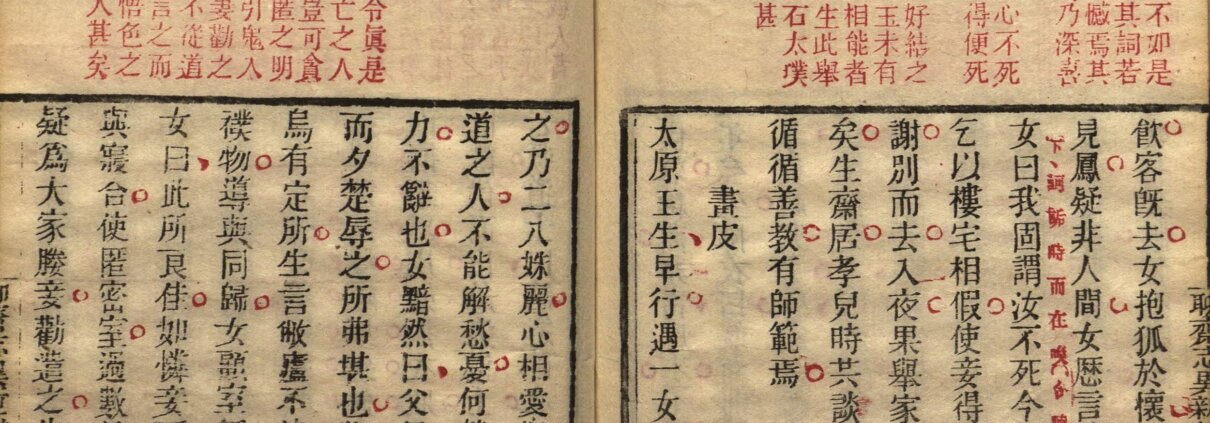 不如是
其詞若
憾焉其
乃深喜
心不死
得便死
好結之
玉未有
相能者
生此舉
石太璞
甚
聊齋志異新
飲客旣去女抱狐於懷
見鳳疑非人間女歷言
女曰我固謂汝不死今
乞以樓宅相假使妾得
謝別而去入夜果舉家
矣生齋居孝兒時共談
循循善教有師範焉
畫皮
太原王生早行遇一女
令眞是
亡之人
豈可貪
匿之明
引鬼入
妻勸之
不從道
言之而
悟色之
人甚矣
之乃二八姝麗心相愛
道之人不能解愁憂何
力不辭也女黯然曰父
而夕楚辱之所弗堪也
烏有定所生言敝廬不
襆物導與同歸女顧室
女曰此所良佳如憐妾
與寢合使匿密室過數
疑爲大家媵妾勸遣之